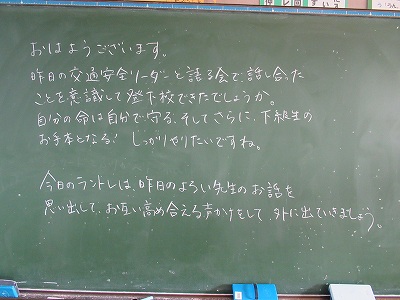 おはようございます。
昨日の交通安全リーダーと語る会で、話し合った
ことを意識して登下校できたでしょうか。
自分の命は自分で守る、そしてさらに、下級生の
お手本となる! しっかりやりたいですね。
今日のラントレは、昨日のよろい先生のお話を
思い出して、お互い高め合える声かけをして、外に出ていきましょう。